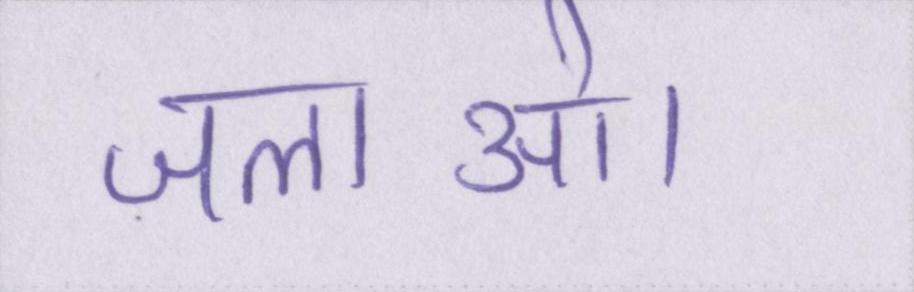 जलाओ।